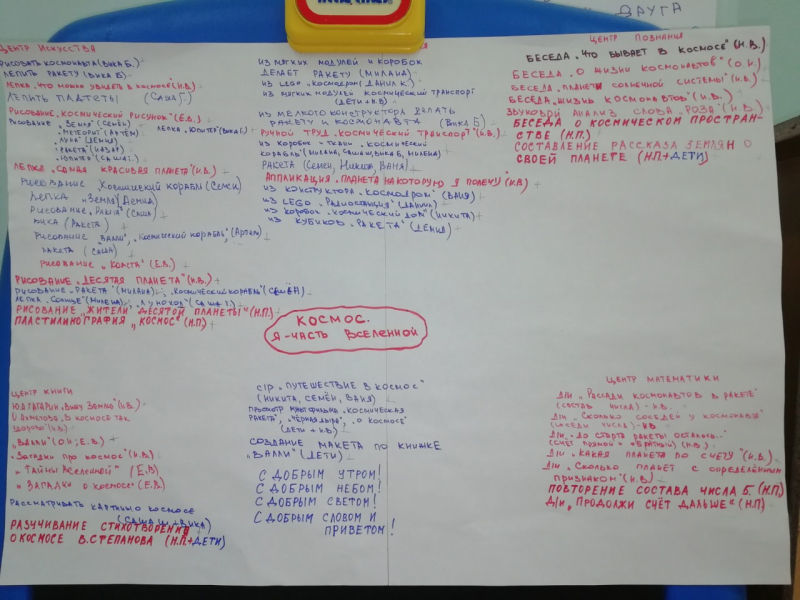 ДРУГА
ЦЕНТР ИСКУССТВА
РИСОВАТЬ КОСМОНАВТА (ВИКА Б.)
ЛЕПИТЬ РАКЕТУ (ВИКА Б)
ЛЕПКА „ЧТО МОЖНО УВИДЕТЬ В КОСМОСЕ" (Н.В.)
ЛЕПИТЬ (САША Г.)
РИСОВАНИЕ „КОСМИЧЕСКИЙ РИСУНОК" (Е.В.)
РИСОВАНИЕ „ЗЕМЛЯ" (СЕМЁН)
„МЕТЕОРИТ" (АРТЁМ) ЛЕПКА „ЮПИТЕР" (ВИКА Б.)
„ЛУНА" (ДЕМИД)
„РАКЕТА" (НАЗАР)
„ЮПИТЕР" (САША Г.)
ЛЕПКА „САМАЯ КРАСИВАЯ ПЛАНЕТА" (Н.В.)
РИСОВАНИЕ КОСМИЧЕСКИЙ КОРАБЛЬ (СЕМЁН)
ЛЕПКА „ЗЕМЛЯ" (ДЕМИД)
РИСОВАНИЕ „РАКЕТА" (САША)
ВИКА (РАКЕТА)
РИСОВАНИЕ „ВАЛЛИ", „КОСМИЧЕСКИЙ КОРАБЛЬ" (АРТЁМ)
РАКЕТА (САША)
РИСОВАНИЕ „КОМЕТА" (Е.В.)
РИСОВАНИЕ „ДЕСЯТАЯ ПЛАНЕТА" (Н.В.)
РИСОВАНИЕ „РАКЕТА" (МИЛАНА), „КОСМИЧЕСКИЙ КОРАБЛЬ"
ЛЕПКА „СОЛНЦЕ" (МИЛЕНА), „ЛУНОХОД" (САША Г.)
РИСОВАНИЕ „ЖИТЕЛИ ДЕСЯТОЙ ПЛАНЕТЫ" (Н.П.)
ПЛАСТИЛИНОГРАФИЯ „КОСМОС" (Н.П)
ИЗ МЯГКИХ МОДУЛЕЙ И КОРОБОК
ДЕЛАЕТ РАКЕТУ (МИЛАНА)
ИЗ LEGO „КОСМОДРОМ" (ДАНИЛ К.)
ИЗ МЯГКИХ МОДУЛЕЙ КОСМИЧЕСКИЙ ТРАНСПОРТ
(ДЕТИ + Н.В)
ИЗ МЕЛКОГО КОНСТРУКТОРА ДЕЛАТЬ
РАКЕТУ КОСМОНАВТА (ВИКА Б)
РУЧНОЙ ТРУД „КОСМИЧЕСКИЙ ТРАНСПОРТ" (Н.В.)
ИЗ КОРОБОК И ТКАНИ „КОСМИЧЕСКИЙ
КОРАБЛЬ" (МИЛАНА, САША, ВИКА Б, МИЛЕНА)
РАКЕТА (СЕМЁН, НИКИТА, ВАНЯ)
АППЛИКАЦИЯ „ПЛАНЕТА НА КОТОРУЮ Я ПОЛЕЧУ" (Н.В)
ИЗ КОНСТРУКТОРА „КОСМОДРОМ" (ВАНЯ)
ИЗ LEGO „РАДИОСТАНЦИЯ" (ДАНИИЛ)
ИЗ КОРОБОК „КОСМИЧЕСКИЙ ДОМ" (НИКИТА)
ИЗ КУБИКОВ „РАКЕТА" (ДЕМИД)
ЦЕНТР ПОЗНАНИЯ
БЕСЕДА „ЧТО БЫВАЕТ В КОСМОСЕ" (Н.В.)
БЕСЕДА „О ЖИЗНИ КОСМОНАВТОВ" (О.И.)
БЕСЕДА „ПЛАНЕТЫ СОЛНЕЧНОЙ СИСТЕМЫ" (Н.В.)
БЕСЕДА „ЖИЗНЬ КОСМОНАВТОВ" (Н.В.)
ЗВУКОВОЙ АНАЛИЗ СЛОВА „РОЗА" (Н.В.)
БЕСЕДА О КОСМИЧЕСКОМ ПРОСТРАН-
СТВЕ (Н.П.)
СОСТАВЛЕНИЕ РАССКАЗА ЗЕМЛЯН О
СВОЕЙ ПЛАНЕТЕ (Н.П+ДЕТИ)
КОСМОС.
Я-ЧАСТЬ ВСЕЛЕННОЙ
ЦЕНТР КНИГИ
Ю.ГАГАРИН „ВИЖУ ЗЕМЛЮ" (Н.В.)
О.АХМЕТОВА „В КОСМОСЕ ТАК
ЗДОРОВО" (Н.В.)
„ВАЛЛИ" (О.И, Е.В.)
„ЗАГАДКИ ПРО КОСМОС" (Н.В.)
„ТАЙНЫ ВСЕЛЕННОЙ" (Е.В)
„ЗАГАДКИ О КОСМОСЕ" (Е.В.)
РАССМАТРИВАТЬ КАРТИНКИ О КОСМОСЕ
РАЗУЧИВАНИЕ СТИХОТВОРЕНИЯ
О КОСМОСЕ В.СТЕПАНОВА (Н.П+ДЕТИ)
С/Р „ПУТЕШЕСТВИЕ В КОСМОС"
(НИКИТА, СЕМЁН, ВАНЯ)
ПРОСМОТР МУЛЬТФИЛЬМА „КОСМИЧЕСКАЯ
РАКЕТА", „ЧЁРНАЯ ДЫРА", „О КОСМОСЕ"
(ДЕТИ + Н.В.)
СОЗДАНИЕ МАКЕТА ПО КНИЖКЕ
„ВАЛЛИ" (ДЕТИ)
С ДОБРЫМ УТРОМ!
С ДОБРЫМ НЕБОМ!
С ДОБРЫМ СВЕТОМ!
С ДОБРЫМ СЛОВОМ И
ПРИВЕТОМ!
ЦЕНТР МАТЕМАТИКИ
Д/И „РАССАДИ КОСМОНАВТОВ В РАКЕТЕ"
(СОСТАВ ЧИСЛА) - Н.В.
Д/И „СКОЛЬКО СОСЕДЕЙ У КОСМОНАВТА"
(СОСЕДИ ЧИСЛА) - Н.В
Д/И „ДО СТАРТА РАКЕТЫ ОСТАЛОСЬ..."
(СЧЁТ ПРЯМОЙ И ОБРАТНЫЙ) (Н.В.)
Д/И „КАКАЯ ПЛАНЕТА ПО СЧЁТУ" (Н.В.)
Д/И „СКОЛЬКО ПЛАНЕТ С ОПРЕДЕЛЁННЫМ
ПРИЗНАКОМ" (Н.В)
ПОВТОРЕНИЕ СОСТАВА ЧИСЛА 6. (Н.П)
Д/И „ПРОДОЛЖИ СЧЁТ ДАЛЬШЕ" (Н.П)